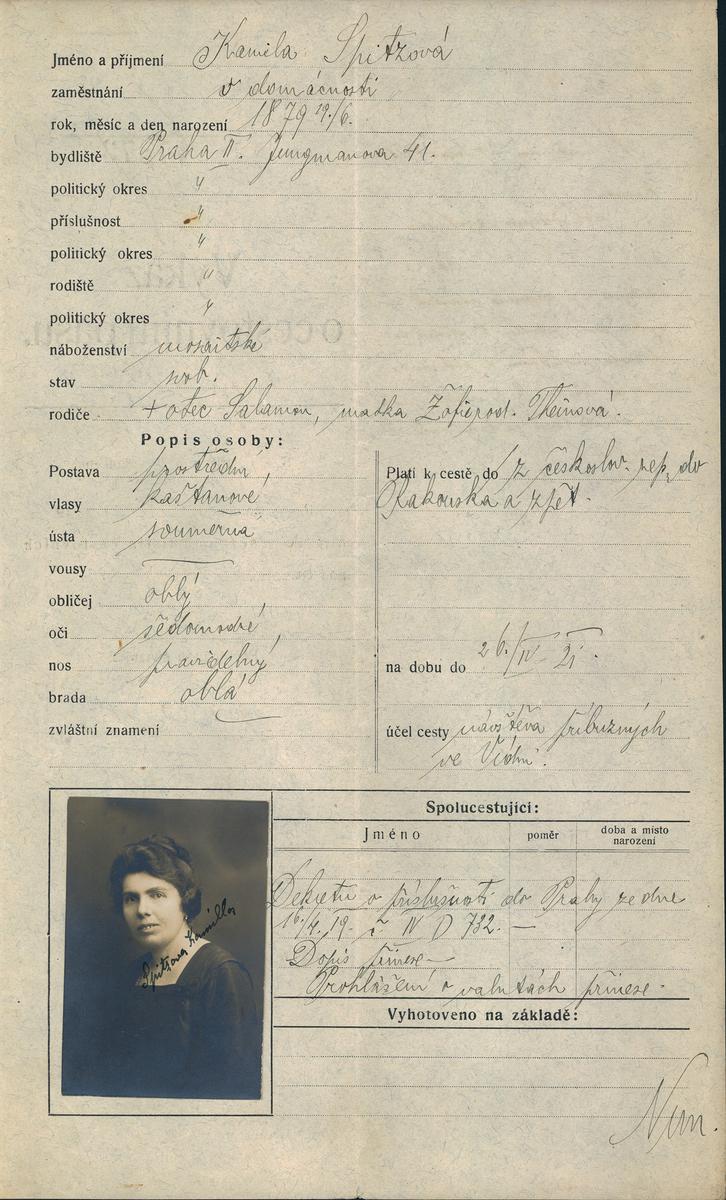 Jméno a příjmení Kamila Spitzová
zaměstnání v domácnosti
rok, měsíc a den narození 1879 19./6.
bydliště Praha II. Jungmanova 41.
politický okres "
příslušnost "
politický okres "
rodiště "
politický okres "
náboženství mosaitské
stav svob.
rodiče + otec Salamon, matka Žofie rod. Theinová.
Popis osoby:
Postava prostřední
vlasy kaštanové
ústa souměrná
vousy —
obličej oblý
oči šedomodré
nos pravidelný
brada oblá
zvláštní znamení
Platí k cestě do z českoslov. rep. do
Rakouska a zpět.
na dobu do 26./IV 21.
účel cesty návštěva příbuzných
ve Vídni.
Spitzova Kamilla
Spolucestující:
Jméno poměr doba a místo
narození
Dekretu o příslušnosti do Prahy ze dne
16./4. 19. č. IV D 732. —
Dopis přinese —
Prohlášení o valutách přinese.
Vyhotoveno na základě: